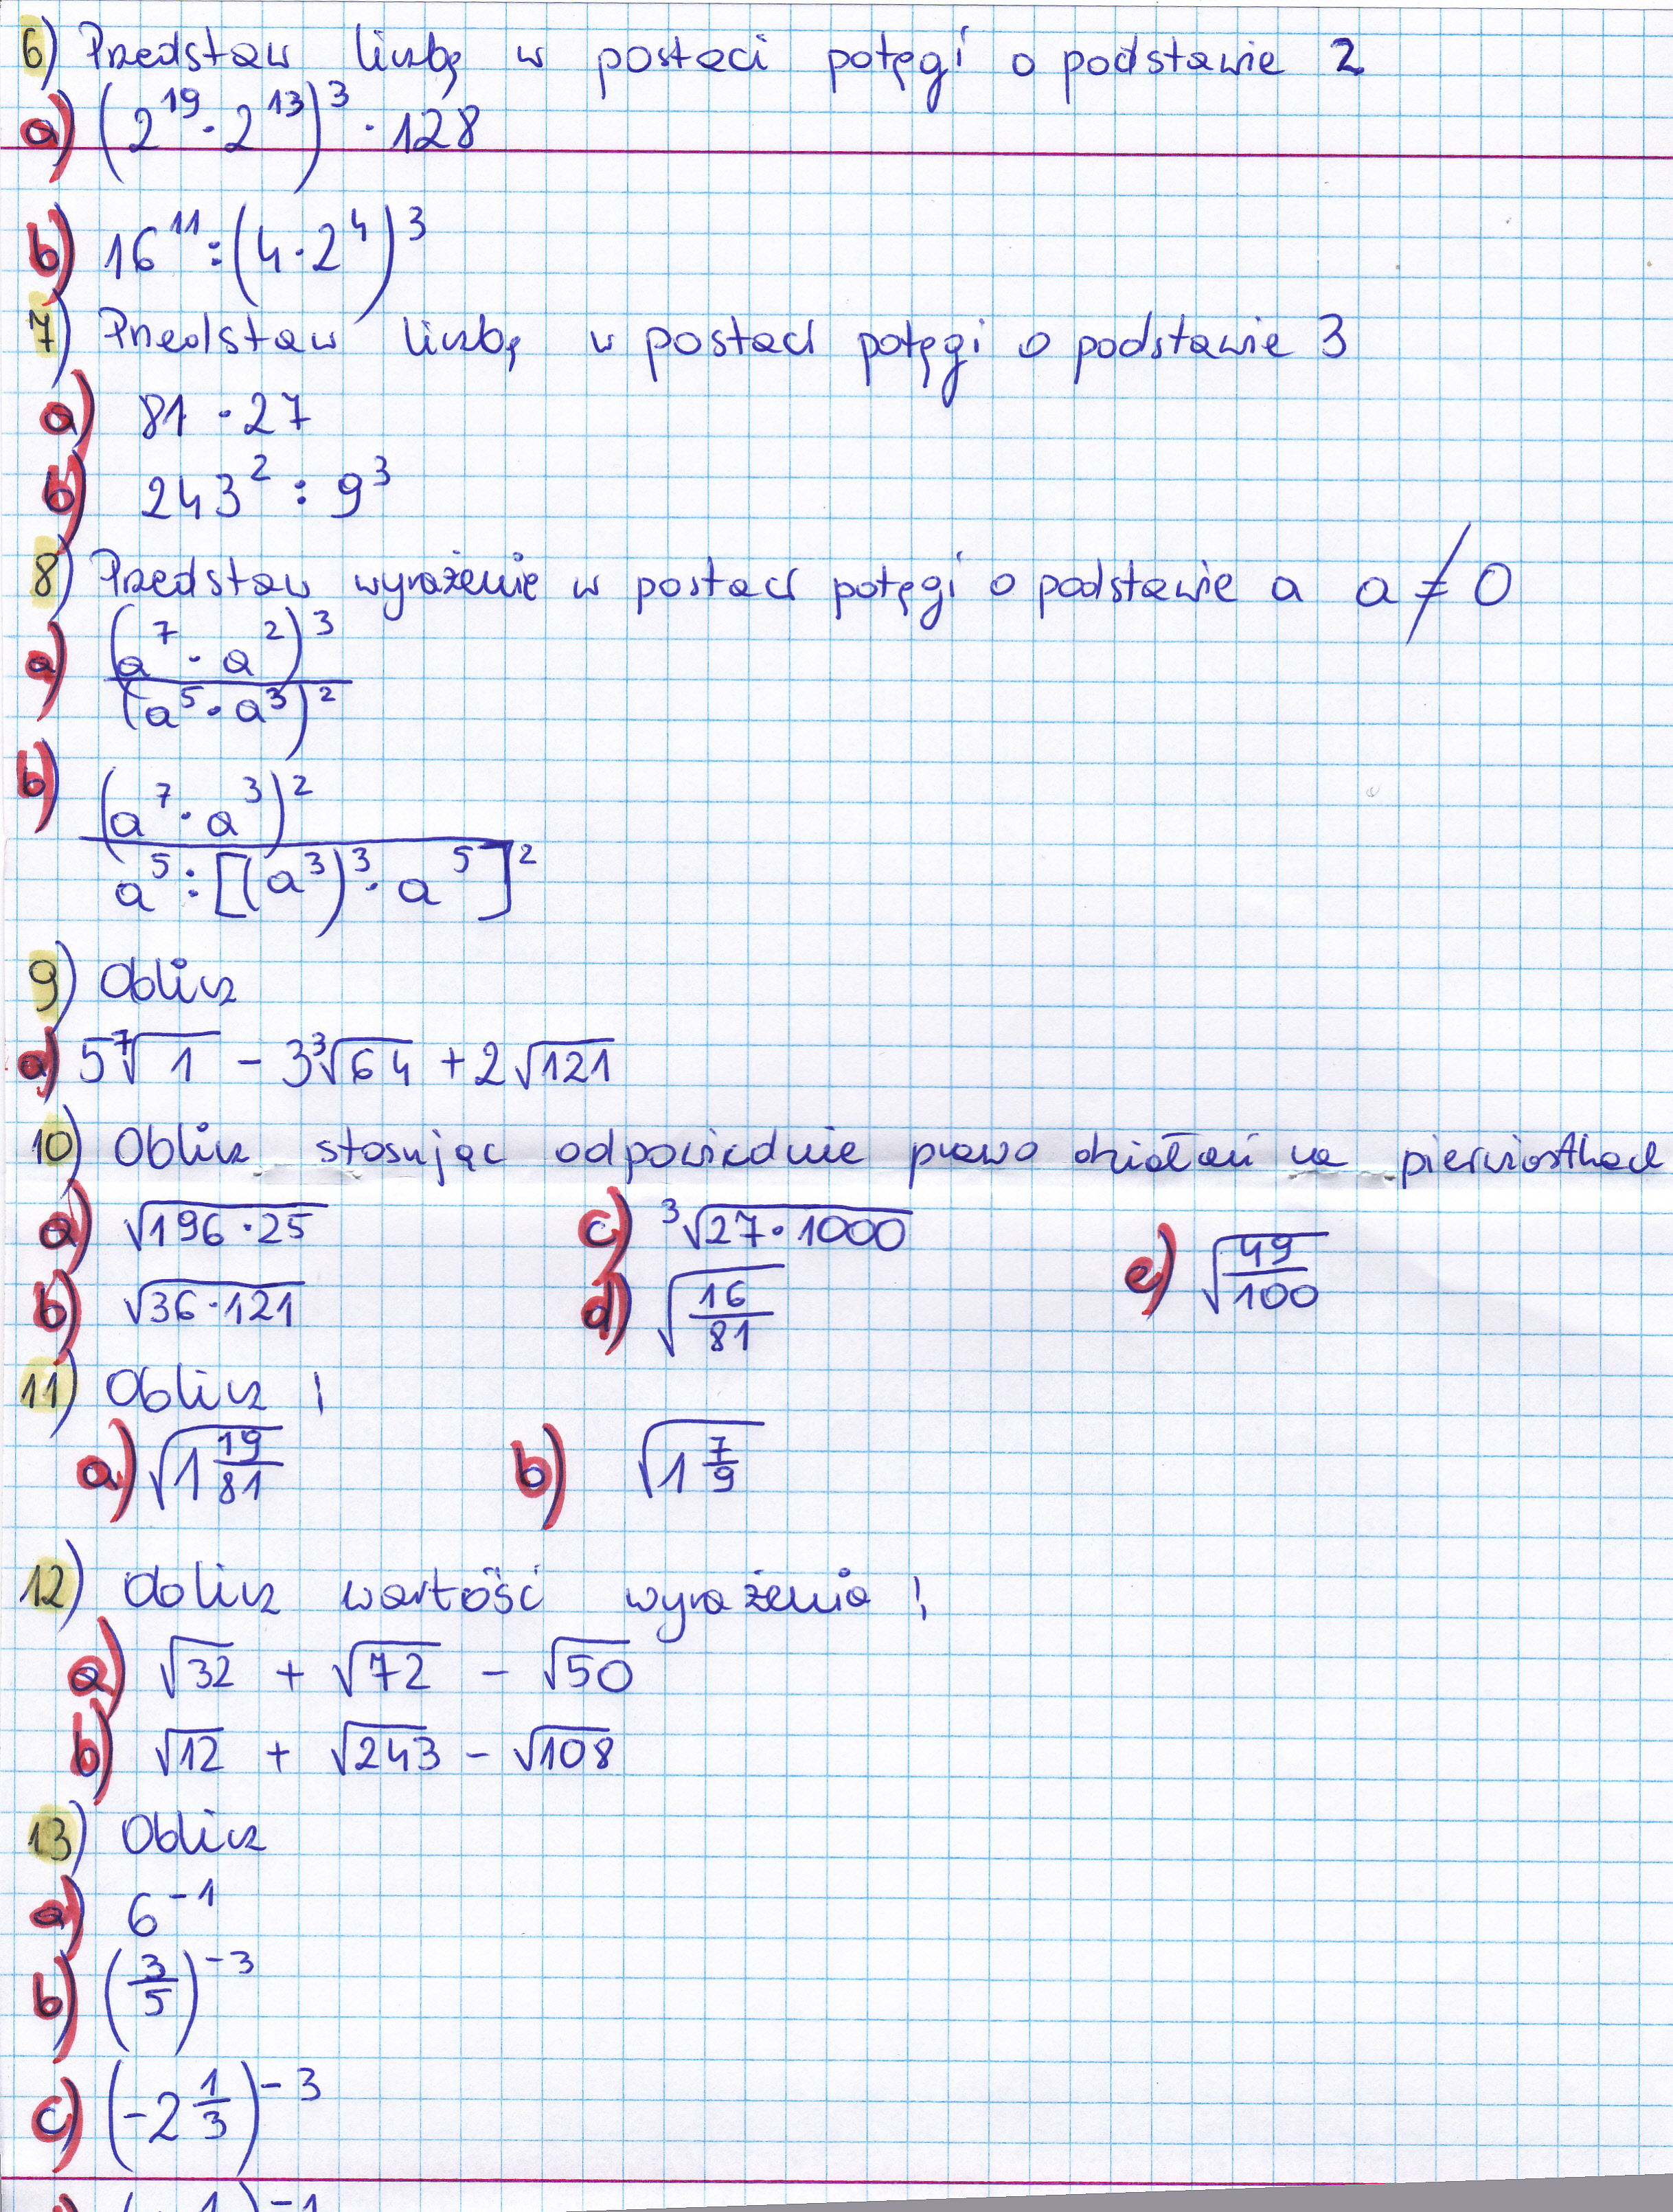 6) Przedstaw liczbę w postaci potęgi o podstawie 2
a) (2^19 · 2^13)^3 · 128
b) 16^11 : (4 · 2^4)^3
7) Przedstaw liczbę w postaci potęgi o podstawie 3
a) 81 · 27
b) 243^2 : 9^3
8) Przedstaw wyrażenie w postaci potęgi o podstawie a a ≠ 0
a) (a^7 · a^2)^3 / (a^5 · a^3)^2
b) (a^7 · a^3)^2 / a^5 : [(a^3)^3 · a^5]^2
9) Oblicz
a) 5 ⁷√1 - 3 ³√64 + 2√121
10) Oblicz stosując odpowiednie prawo działań na pierwiastkach
a) √(196 · 25) c) ³√(27 · 1000) e) √(49/100)
b) √(36 · 121) d) √(16/81)
11) Oblicz !
a) √(1 19/81) b) √(1 7/9)
12) Oblicz wartość wyrażenia !
a) √32 + √72 - √50
b) √12 + √243 - √108
13) Oblicz
a) 6^-1
b) (3/5)^-3
c) (-2 1/3)^-3